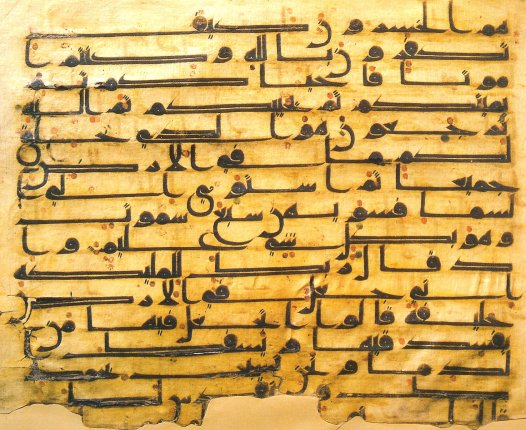 هم الخسرون كيف
تكفرون بالله وكنتم ا
موتا فاحياكم ثم
يميتكم ثم يحييكم ثم اليه
ترجعون هو الذي خلق
لكم ما في الارض
جميعا ثم استوى الى ا
لسما فسويهن سبع سموت
وهو بكل شي عليم وا
ذ قال ربك للمليكه
اني جعل في الارض
خليفه قالوا اتجعل فيها من
يفسد فيها ويسفك ا
لدما ونحن نسبح بحمد
ك ونقدس لك